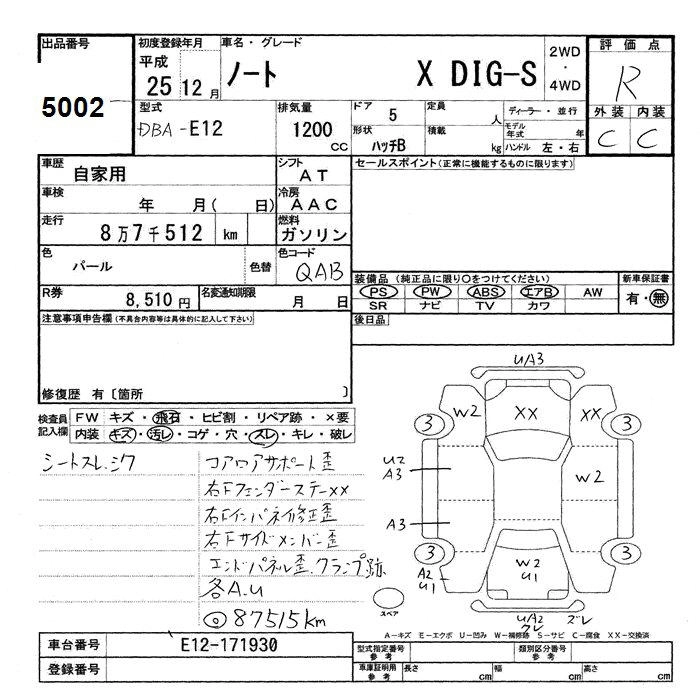 出品番号
5002
初度登録年月
平成
25 12 月
車名・グレード
ノート X DIG-S
2WD
・
4WD
評価点
R
外装 内装
C C
型式
DBA-E12
排気量
1200
CC
ドア 5
定員 人
形状 ハッチB
積載 kg
ディーラー・並行
モデル年式 年
ハンドル 左・右
車歴
自家用
シフト
AT
車検
年 月( 日)
冷房
AAC
走行
8万7千512 km
燃料
ガソリン
色
パール
色替
色コード
QAB
R券
8,510円
名変通知期限
月 日
セールスポイント(正常に機能するものに限ります)
装備品(純正品に限り〇をつけてください)
PS PW ABS エアB AW
SR ナビ TV カワ
新車保証書
有・無
後日品
注意事項申告欄(不具合内容等は具体的に記入して下さい)
修復歴 有〔箇所 〕
検査員記入欄
FW キズ・飛石・ヒビ割・リペア跡・×要
内装 キズ・汚レ・コゲ・穴・スレ・キレ・破レ
シートスレ.シワ
コアロアサポート歪
右Fフェンダーステーxx
右Fインパネ修正歪
右Fサイドメンバー歪
エンドパネル歪.クランプ跡
各A.U
◎87515km
U/A3
W2 XX XX
3 3
U2
A3
W2
A3
3 3
A2
U1
W2
U1
スペア
U/A2 ズレ
クレ
A−キズ E−エクボ U−凹み W−補修跡 S−サビ C−腐食 XX−交換済
車台番号
E12-171930
登録番号
型式指定番号
参考
類別区分番号
参考
車庫証明用
参考
長さ cm 幅 cm 高さ cm